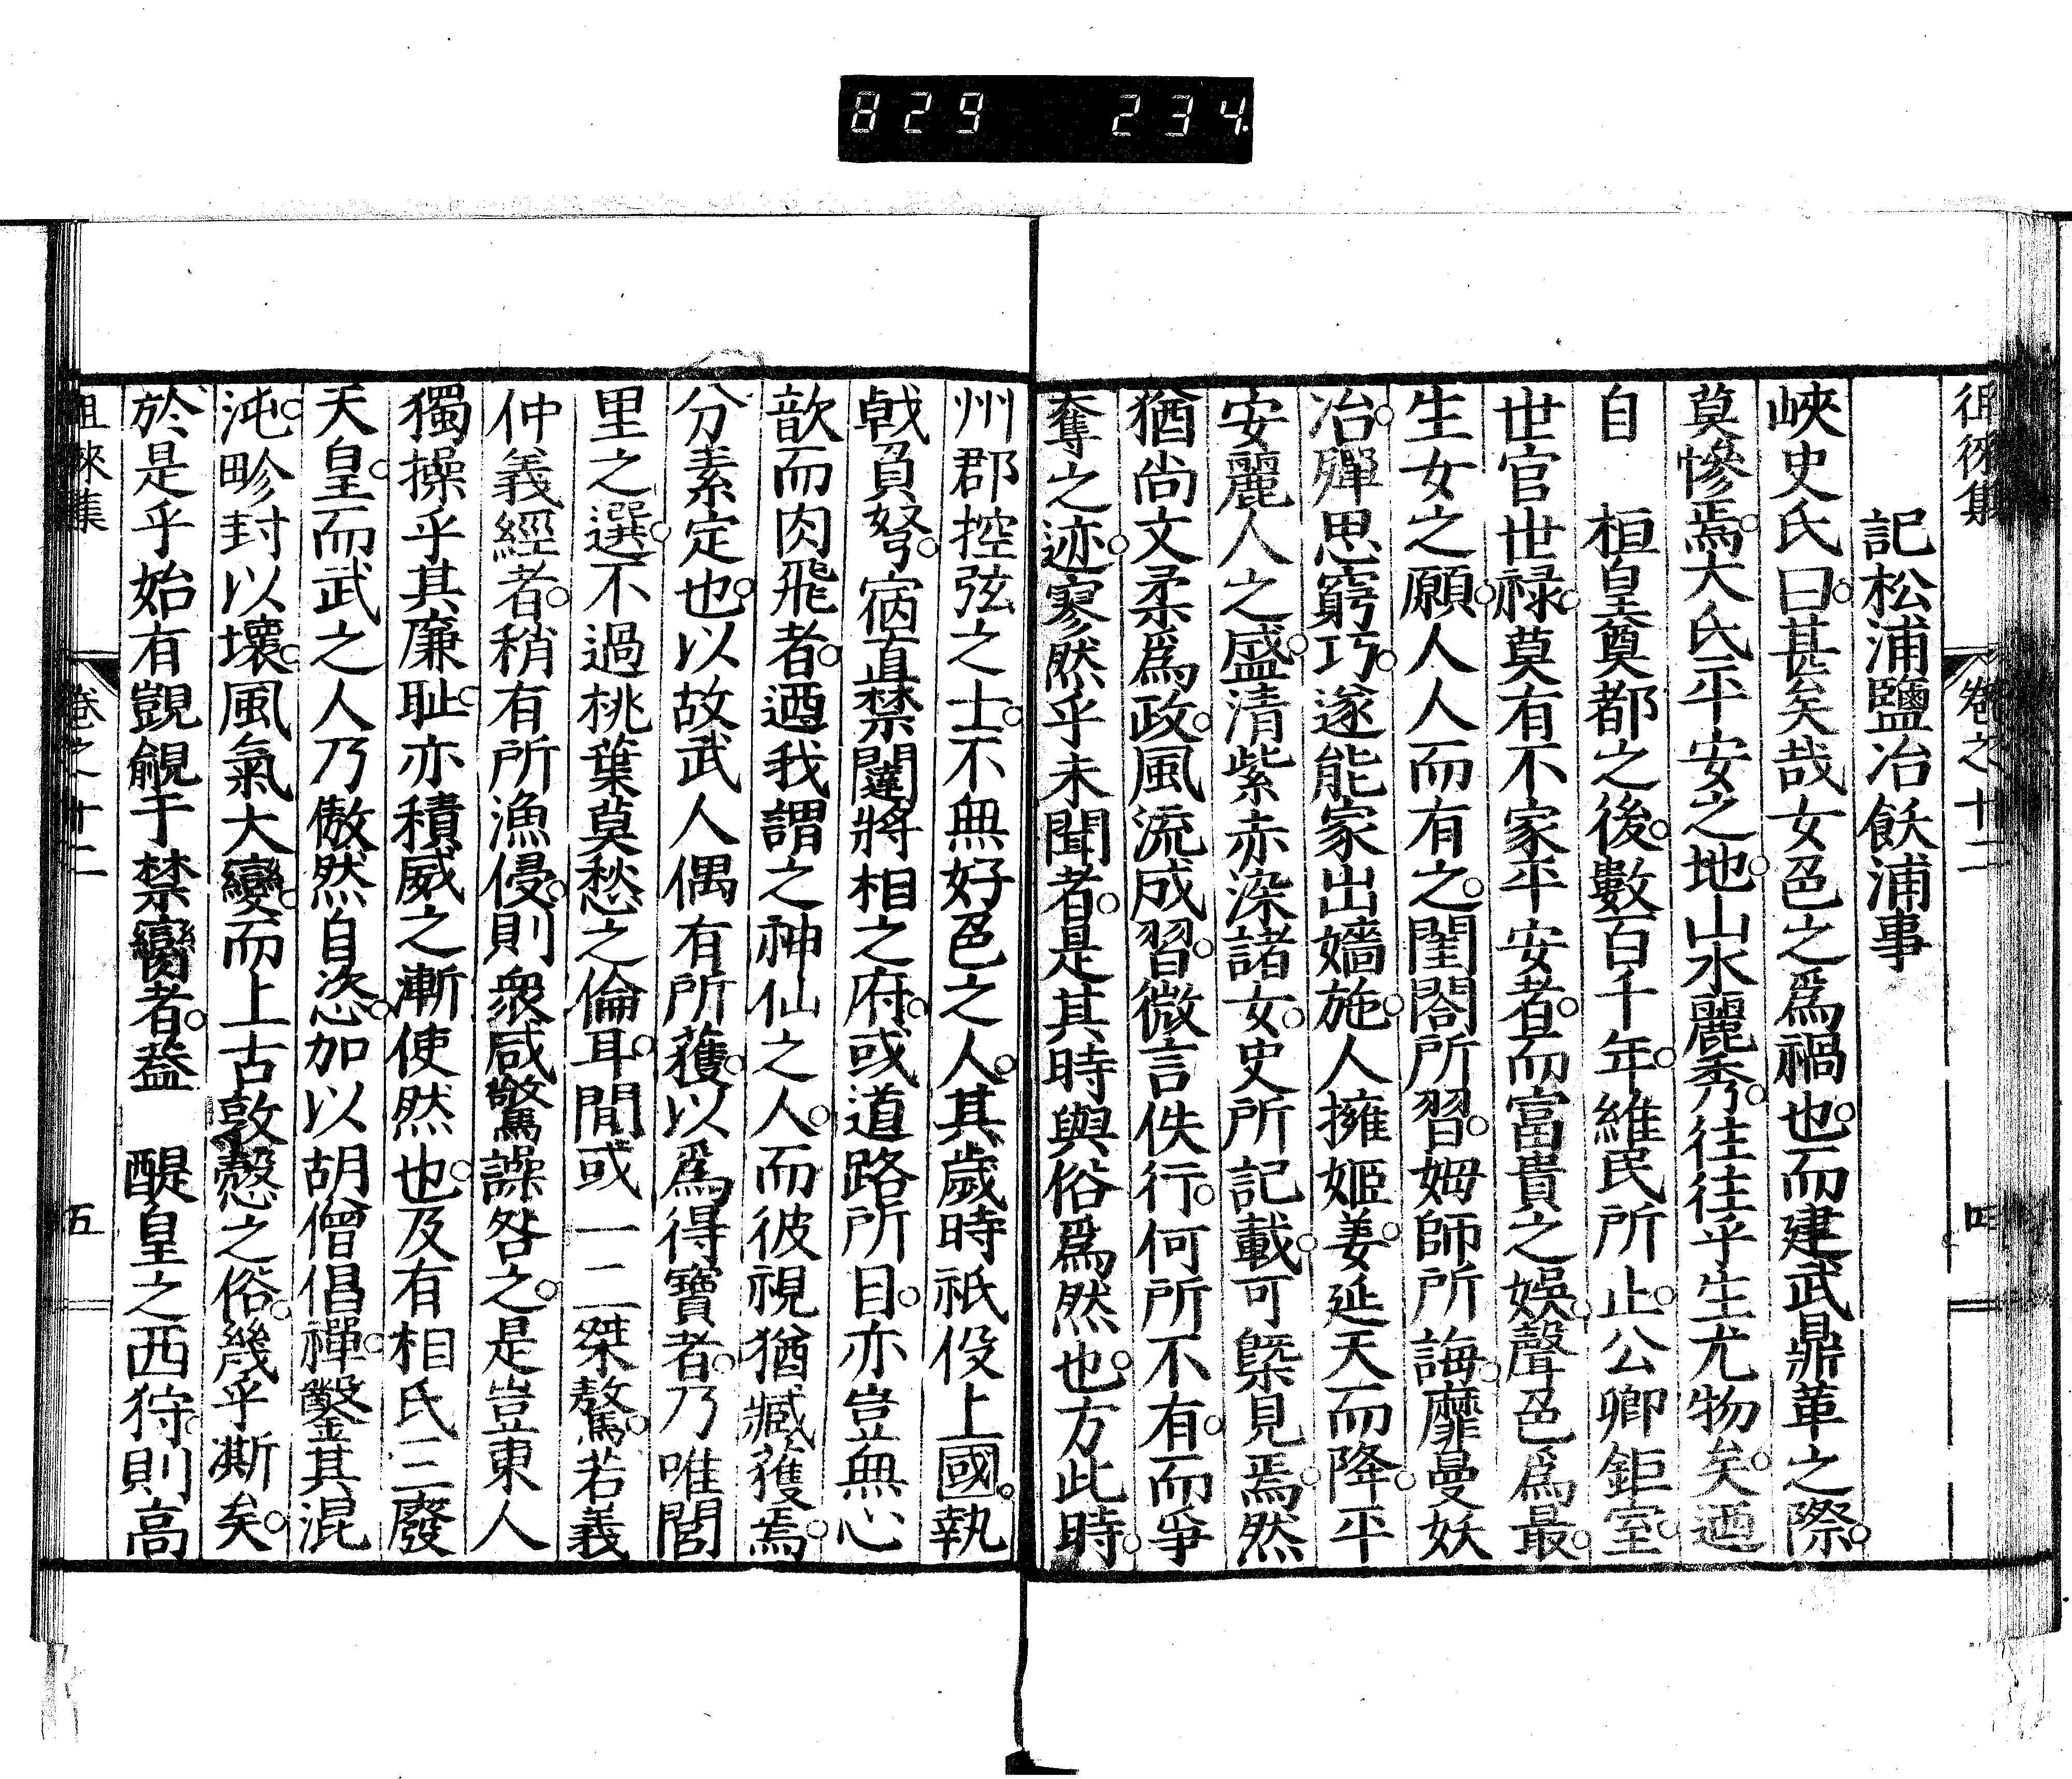 829 234.
徂徠集 卷之十二 四
記松浦鹽冶飫浦事
峽史氏曰。甚矣哉女色之爲禍也。而建武鼎革之際。
莫慘焉。大氐平安之地。山水麗秀。往往乎生尤物矣。迺
自 桓皇奠都之後。數百千年。維民所止。公卿鉅室。
世官世祿。莫有不家平安者。而富貴之娛。聲色爲最。
生女之願。人人而有之。閨閤所習。姆師所誨。靡曼妖
冶。殫思窮巧。遂能家出嬙施。人擁姬姜。延天而降。平
安麗人之盛。清紫赤染諸女。史所記載。可槩見焉。然
猶尚文柔爲政。風流成習。微言佚行。何所不有。而爭
奪之迹。寥然乎未聞者。是其時與俗爲然也。方此時。
州郡控弦之士。不無好色之人。其歲時祇役上國。執
戟負弩。宿直禁闥。將相之府。或道路所目。亦豈無心
歆而肉飛者。迺我謂之神仙之人。而彼視猶臧獲焉。
分素定也。以故武人偶有所獲。以爲得寶者。乃唯閭
里之選。不過桃葉莫愁之倫耳。間或一二桀驁。若義
仲義經者。稍有所漁侵。則衆咸驚譟咎之。是豈東人
獨操乎其廉恥。亦積威之漸使然也。及有相氏三廢
天皇。而武之人乃傲然自恣。加以胡僧倡禪。鑿其混
沌。畛封以壞。風氣大變。而上古敦慤之俗。幾乎澌矣。
於是乎始有覬覦于禁臠者。蓋 醍皇之西狩。則高
徂徠集 卷之十二 五